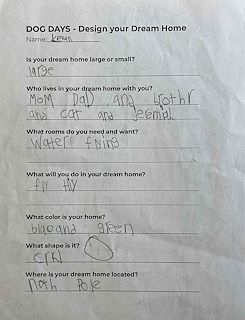 DOG DAYS - Design your Dream Home
Name: Kevin
Is your dream home large or small?
large
Who lives in your dream home with you?
Mom Dad and brothr
and cat and Jeremiah
What rooms do you need and want?
What will you do in your dream home?
What color is your home?
blue and green
What shape is it?
Where is your dream home located?
Noth Pole